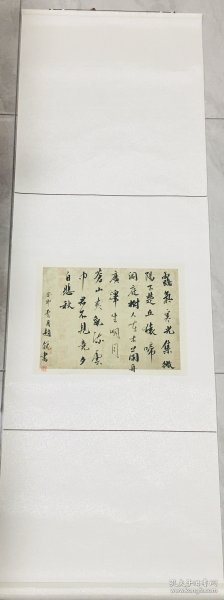 露氣寒光集微
陽下楚丘猿啼
洞庭樹人在木蘭舟
廣澤生明月
蒼山夾亂流雲
中君不見竟夕
自悲秋
癸卯 月趙 書